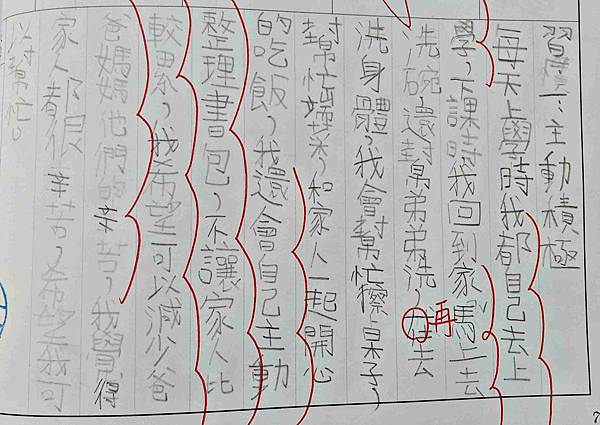 習慣一:主動積極
每天上學時我都自己去上
學,下課時我回到家馬上去
洗碗還幫弟弟洗,在去
再
洗身體,我會幫忙擦桌子,
幫忙端菜,和家人一起開心
的吃飯,我還會自己主動
整理書包,不讓家人比
較累,我希望可以減少爸
爸媽媽他們的辛苦,我覺得
家人都很辛苦,希望我可
以幫忙。
7